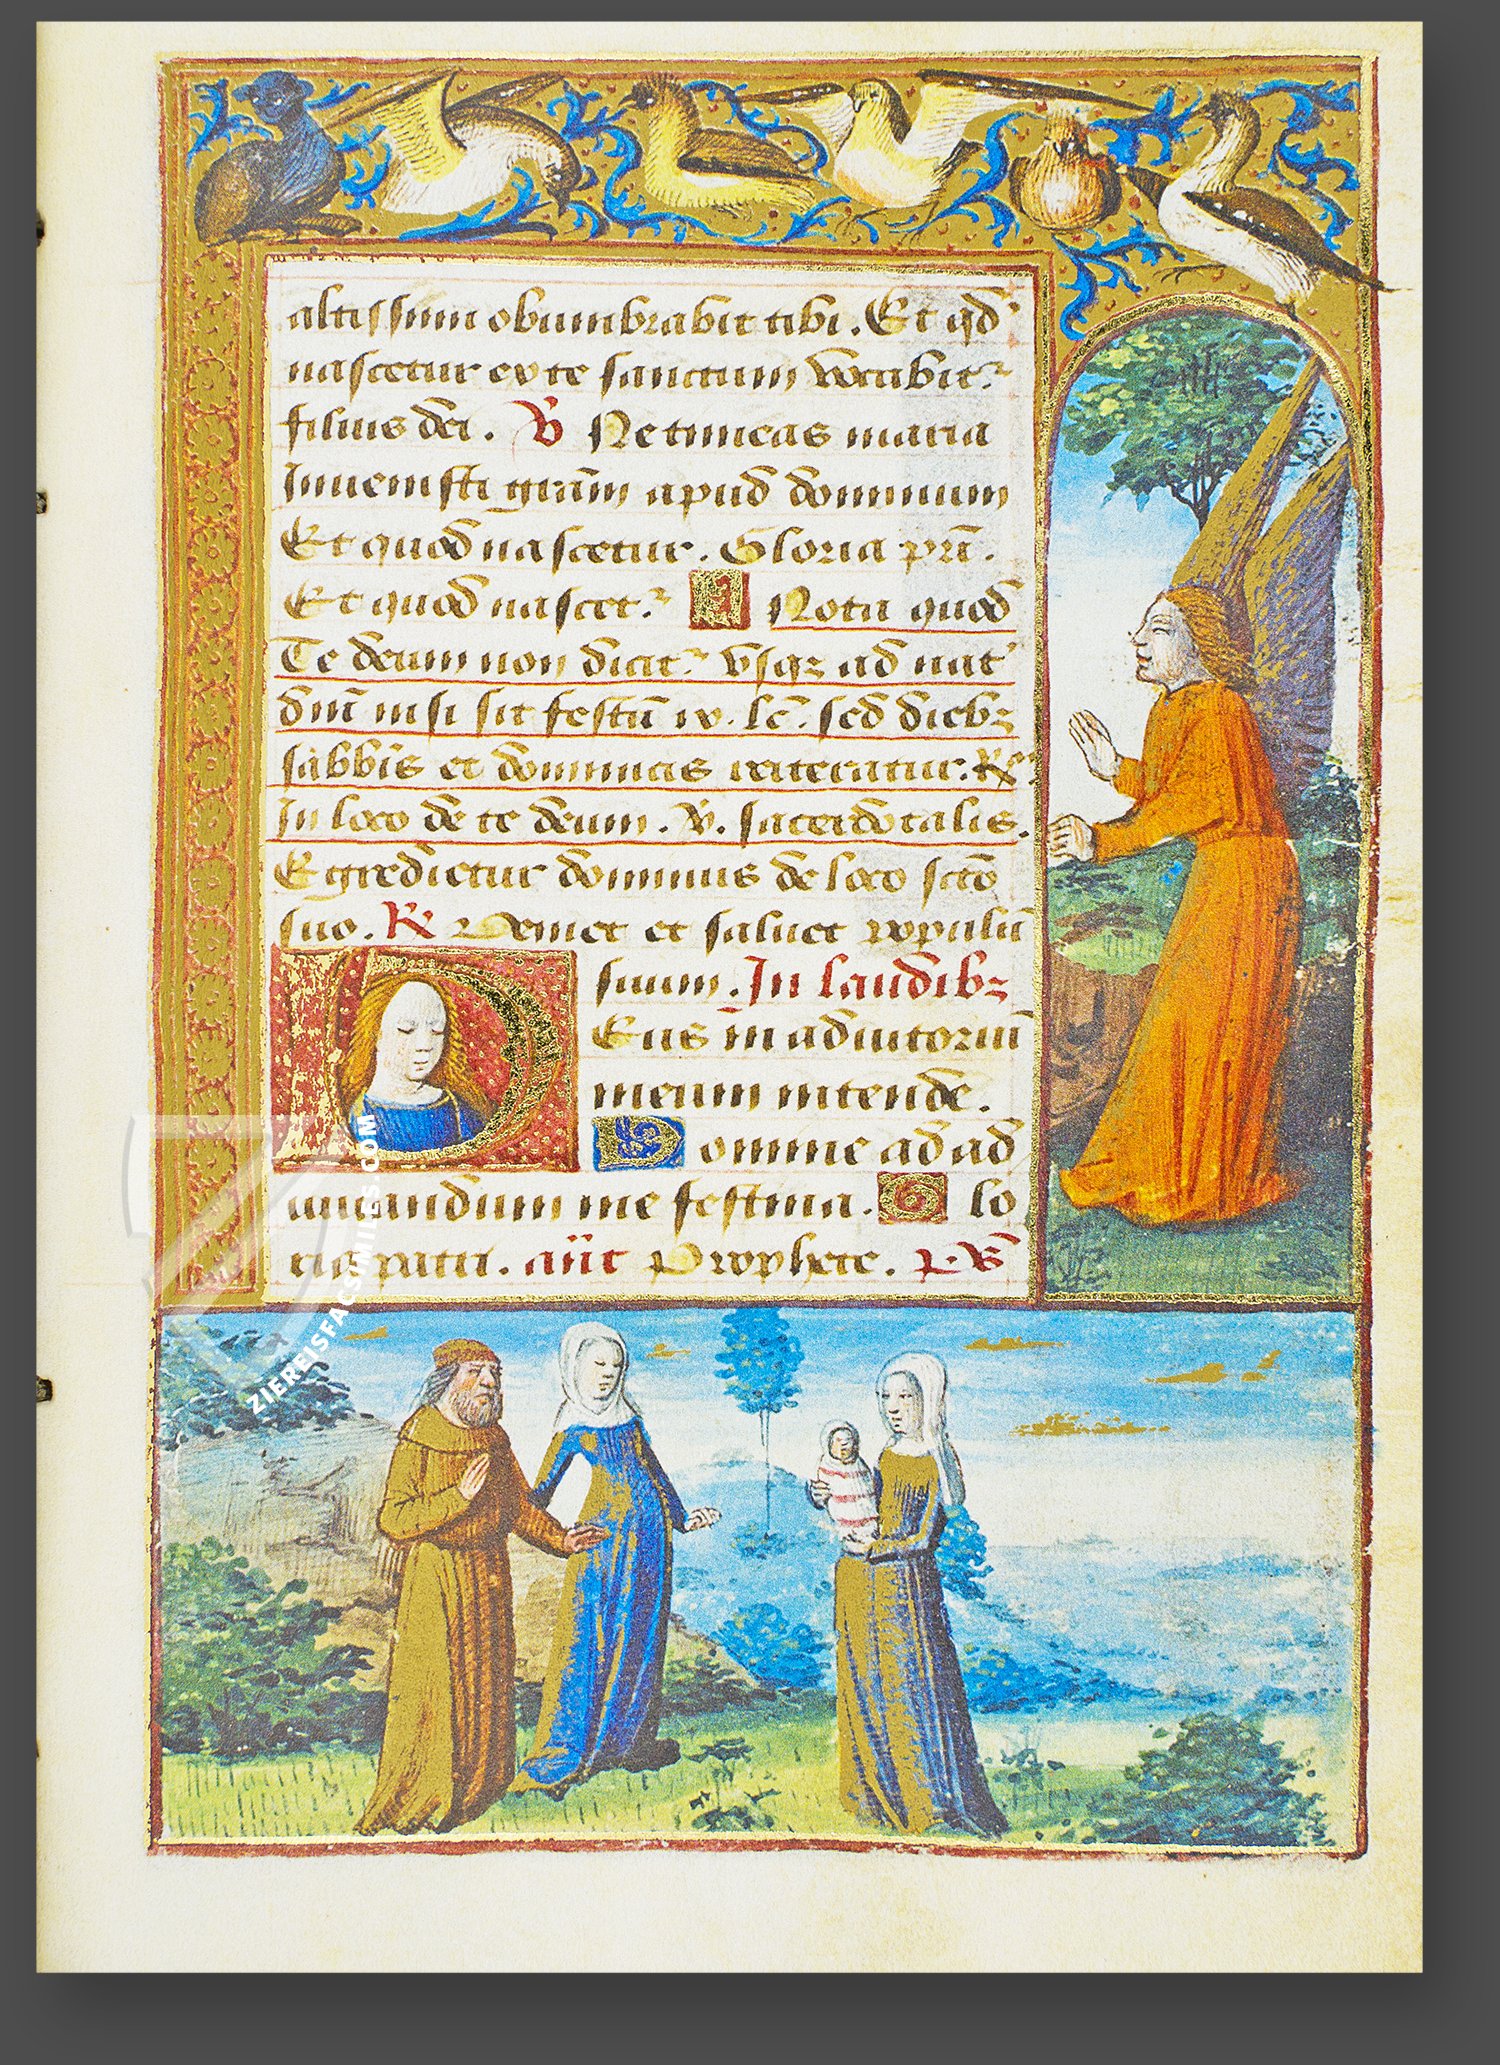 altissimi obumbrabit tibi. Et qd̄
nascetur ex te sanctum vocabit᷑
filius dei. V̄ Ne timeas maria
Invenisti grām apud dominum
Et quod nascetur. Gloria prī.
Et quod nascet᷑ Nota quod
Te deum non dicit᷑ vsqꝫ ad nat'
dnī nisi sit festū ix. lc̄. sed diebꝫ
sabbīs et dominicis reiteratur. R̄
In loco de te deum. V̄. sacerdotalis.
Egredietur dominus de loco sct̄o
suo. R̄ Veniet et saluet populū
suum. In laudibꝫ
Eus in adiutoriū
meum intende.
Domine ad ad
iuuandum me festina. Glo
ria patri. añt Prophete. p̄s
ZIEREISFACSIMILES.COM